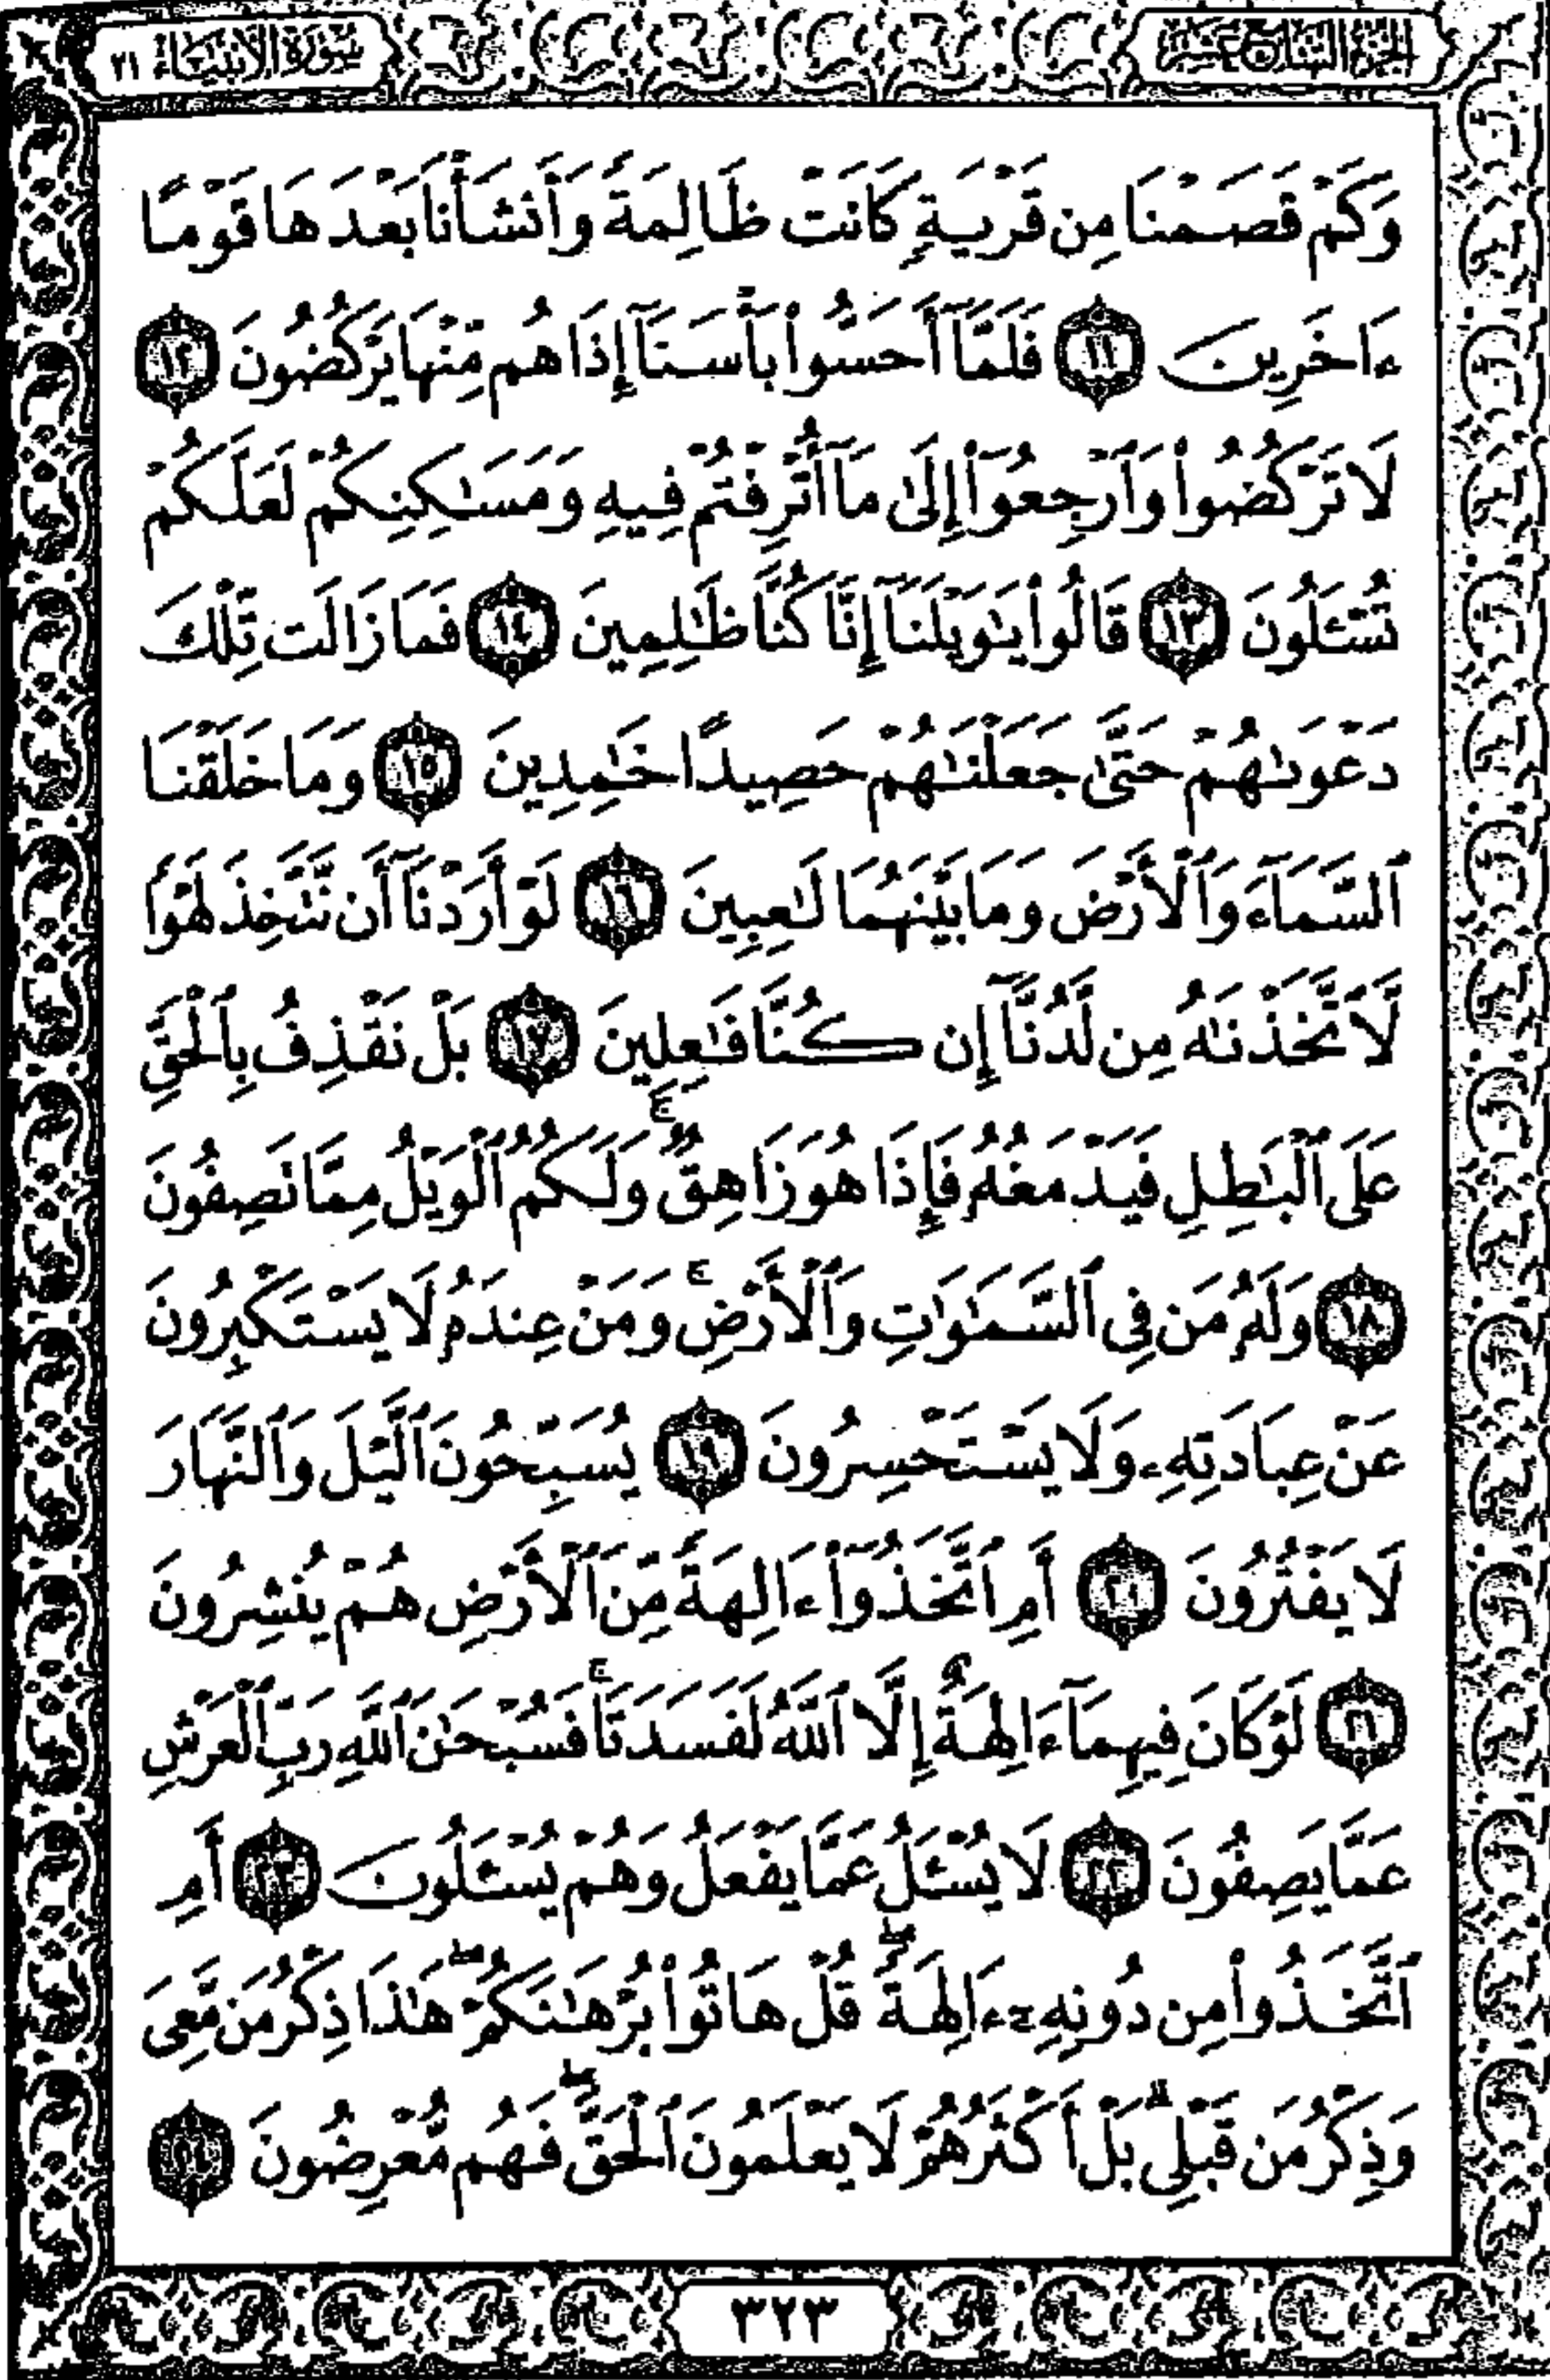 الجزء السابع عشر
سورة الأنبياء ٢١
وَكَمْ قَصَمْنَا مِن قَرْيَةٍ كَانَتْ ظَالِمَةً وَأَنشَأْنَا بَعْدَهَا قَوْمًا
ءَاخَرِينَ ١١ فَلَمَّآ أَحَسُّوا۟ بَأْسَنَآ إِذَا هُم مِّنْهَا يَرْكُضُونَ ١٢
لَا تَرْكُضُوا۟ وَٱرْجِعُوٓا۟ إِلَىٰ مَآ أُتْرِفْتُمْ فِيهِ وَمَسَـٰكِنِكُمْ لَعَلَّكُمْ
تُسْـَٔلُونَ ١٣ قَالُوا۟ يَـٰوَيْلَنَآ إِنَّا كُنَّا ظَـٰلِمِينَ ١٤ فَمَا زَالَت تِّلْكَ
دَعْوَىٰهُمْ حَتَّىٰ جَعَلْنَـٰهُمْ حَصِيدًا خَـٰمِدِينَ ١٥ وَمَا خَلَقْنَا
ٱلسَّمَآءَ وَٱلْأَرْضَ وَمَا بَيْنَهُمَا لَـٰعِبِينَ ١٦ لَوْ أَرَدْنَآ أَن نَّتَّخِذَ لَهْوًا
لَّٱتَّخَذْنَـٰهُ مِن لَّدُنَّآ إِن كُنَّا فَـٰعِلِينَ ١٧ بَلْ نَقْذِفُ بِٱلْحَقِّ
عَلَى ٱلْبَـٰطِلِ فَيَدْمَغُهُۥ فَإِذَا هُوَ زَاهِقٌ ۚ وَلَكُمُ ٱلْوَيْلُ مِمَّا تَصِفُونَ
١٨ وَلَهُۥ مَن فِى ٱلسَّمَـٰوَٰتِ وَٱلْأَرْضِ ۚ وَمَنْ عِندَهُۥ لَا يَسْتَكْبِرُونَ
عَنْ عِبَادَتِهِۦ وَلَا يَسْتَحْسِرُونَ ١٩ يُسَبِّحُونَ ٱلَّيْلَ وَٱلنَّهَارَ
لَا يَفْتُرُونَ ٢٠ أَمِ ٱتَّخَذُوٓا۟ ءَالِهَةً مِّنَ ٱلْأَرْضِ هُمْ يُنشِرُونَ
٢١ لَوْ كَانَ فِيهِمَآ ءَالِهَةٌ إِلَّا ٱللَّهُ لَفَسَدَتَا ۚ فَسُبْحَـٰنَ ٱللَّهِ رَبِّ ٱلْعَرْشِ
عَمَّا يَصِفُونَ ٢٢ لَا يُسْـَٔلُ عَمَّا يَفْعَلُ وَهُمْ يُسْـَٔلُونَ ٢٣ أَمِ
ٱتَّخَذُوا۟ مِن دُونِهِۦٓ ءَالِهَةً ۖ قُلْ هَاتُوا۟ بُرْهَـٰنَكُمْ ۖ هَـٰذَا ذِكْرُ مَن مَّعِىَ
وَذِكْرُ مَن قَبْلِى ۗ بَلْ أَكْثَرُهُمْ لَا يَعْلَمُونَ ٱلْحَقَّ ۖ فَهُم مُّعْرِضُونَ ٢٤
٣٢٣